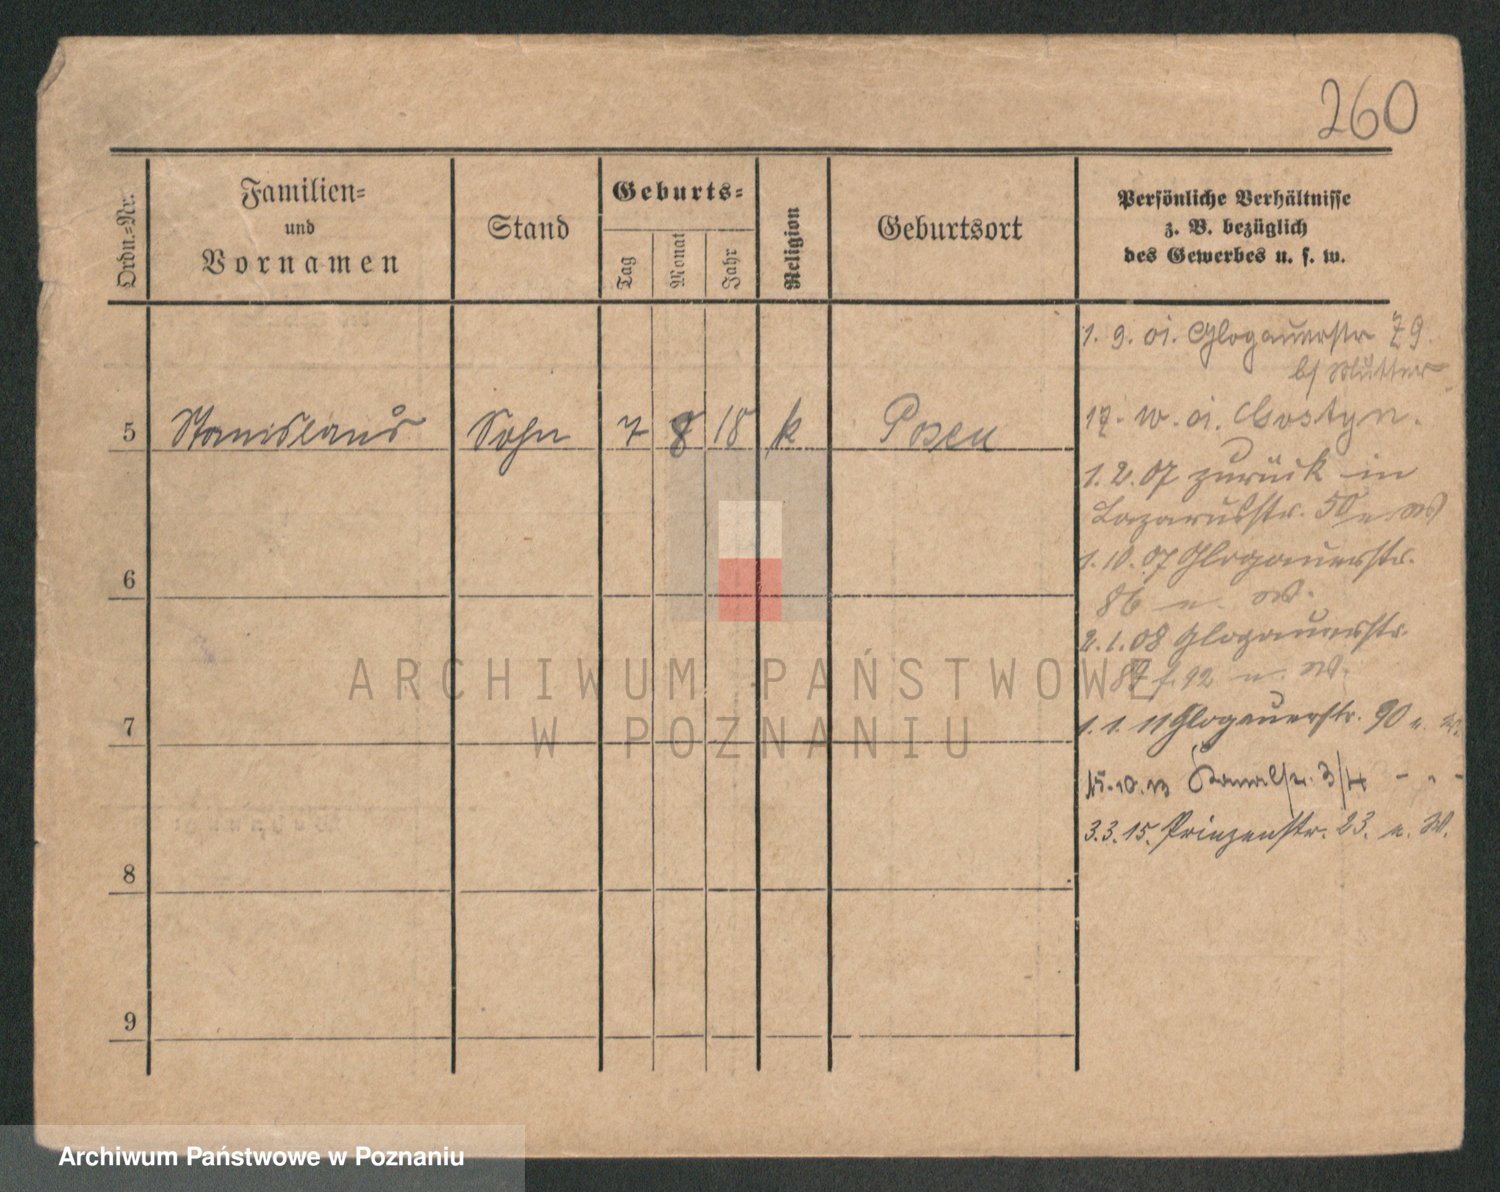 260
Ordn.-Nr.
Familien-
und
Vornamen
Stand
Geburts-
Tag
Monat
Jahr
Religion
Geburtsort
Persönliche Verhältnisse
z. B. bezüglich
des Gewerbes u. s. w.
1. 9. 01. Glogauerstr 79.
b/ Mutter
5 Stanislaus Sohn 7 8 18 k Posen
17. 01. Gostyn.
1. 2. 07 zurück in
Lazarusstr. 50 n. W
1. 10. 07 Glogauerstr.
86 n. W.
2. 1. 08 Glogauerstr.
92 n. W.
1. 1. 11 Glogauerstr. 90 n. W.
10. 13 Kanalstr. 3/4 - " -
3.3.15. Prinzenstr. 23. n. W.
6
7
8
9
ARCHIWUM PAŃSTWOWE
W POZNANIU
Archiwum Państwowe w Poznaniu